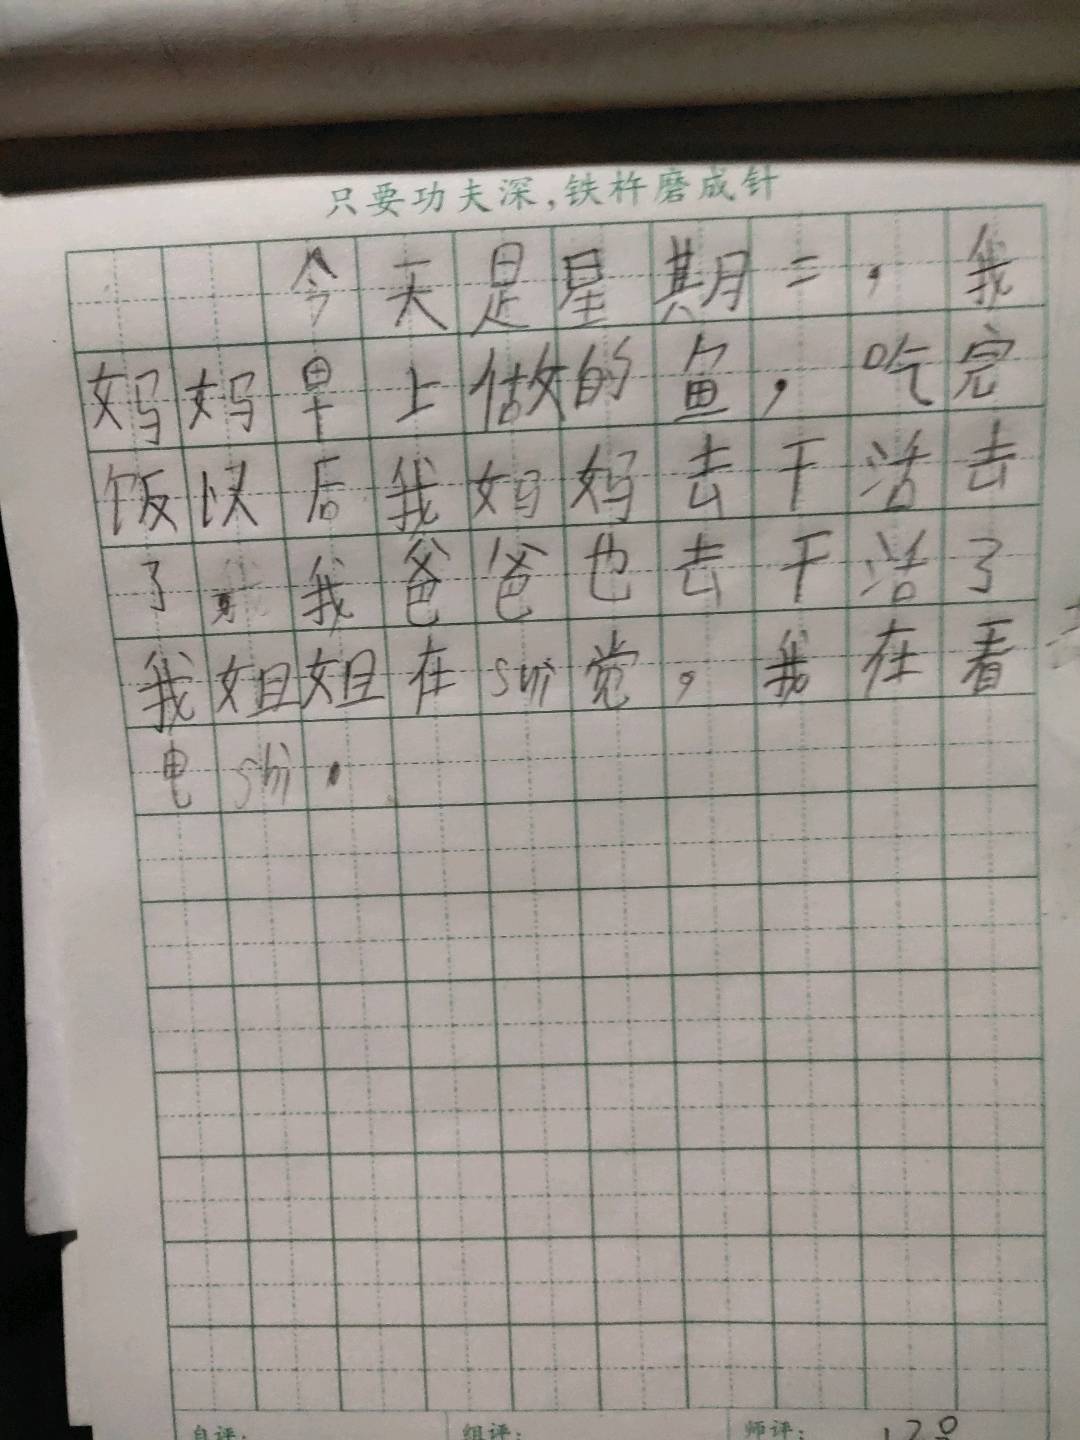 只要功夫深,铁杵磨成针
今天是星期二,我
妈妈早上做的鱼,吃完
饭以后我妈妈去干活去
了,我爸爸也去干活了
我姐姐在sui觉,我在看
电shi.
自评:
组评:
师评: